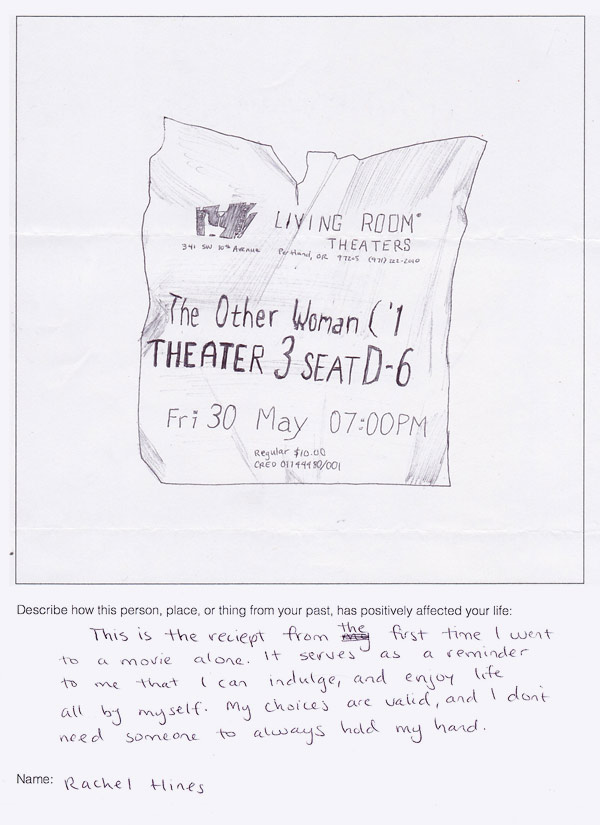 LIVING ROOM
THEATERS
341 SW 10th AVENUE Portland, OR 97205 (971) 222-2010
The Other Woman ('1
THEATER 3 SEAT D-6
Fri 30 May 07:00PM
Regular $10.00
CRED 01744480/001
Describe how this person, place, or thing from your past, has positively affected your life:
This is the reciept from the first time I went
to a movie alone. It serves as a reminder
to me that I can indulge, and enjoy life
all by myself. My choices are valid, and I dont
need someone to always hold my hand.
Name: Rachel Hines